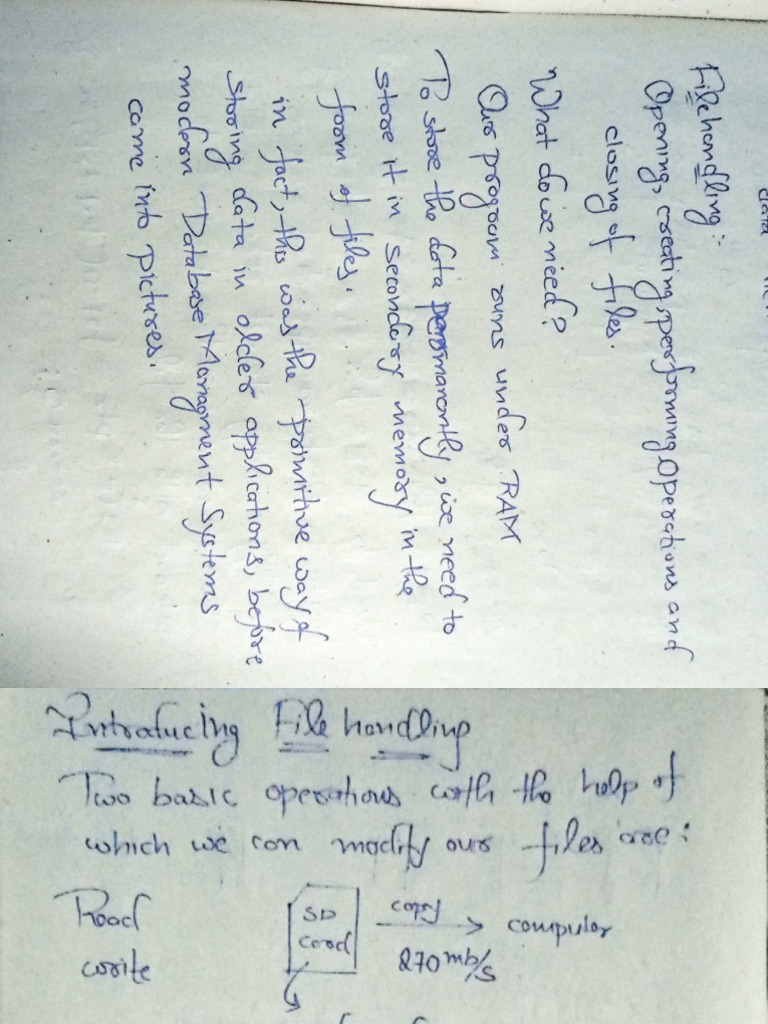 File handling:-
Opening, creating, performing Operations and
closing of files.
What do we need?
Our program runs under RAM
To store the data permarantly, we need to
store it in secondary memory in the
form of files.
in fact, this was the primitive way of
storing data in older applications, before
modern Database Managment Systems
came into pictures.
Introducing File handling
Two basic operations with the help of
which we can modify our files are:
Read
write
SD
card
copy
270 mb/s
computer